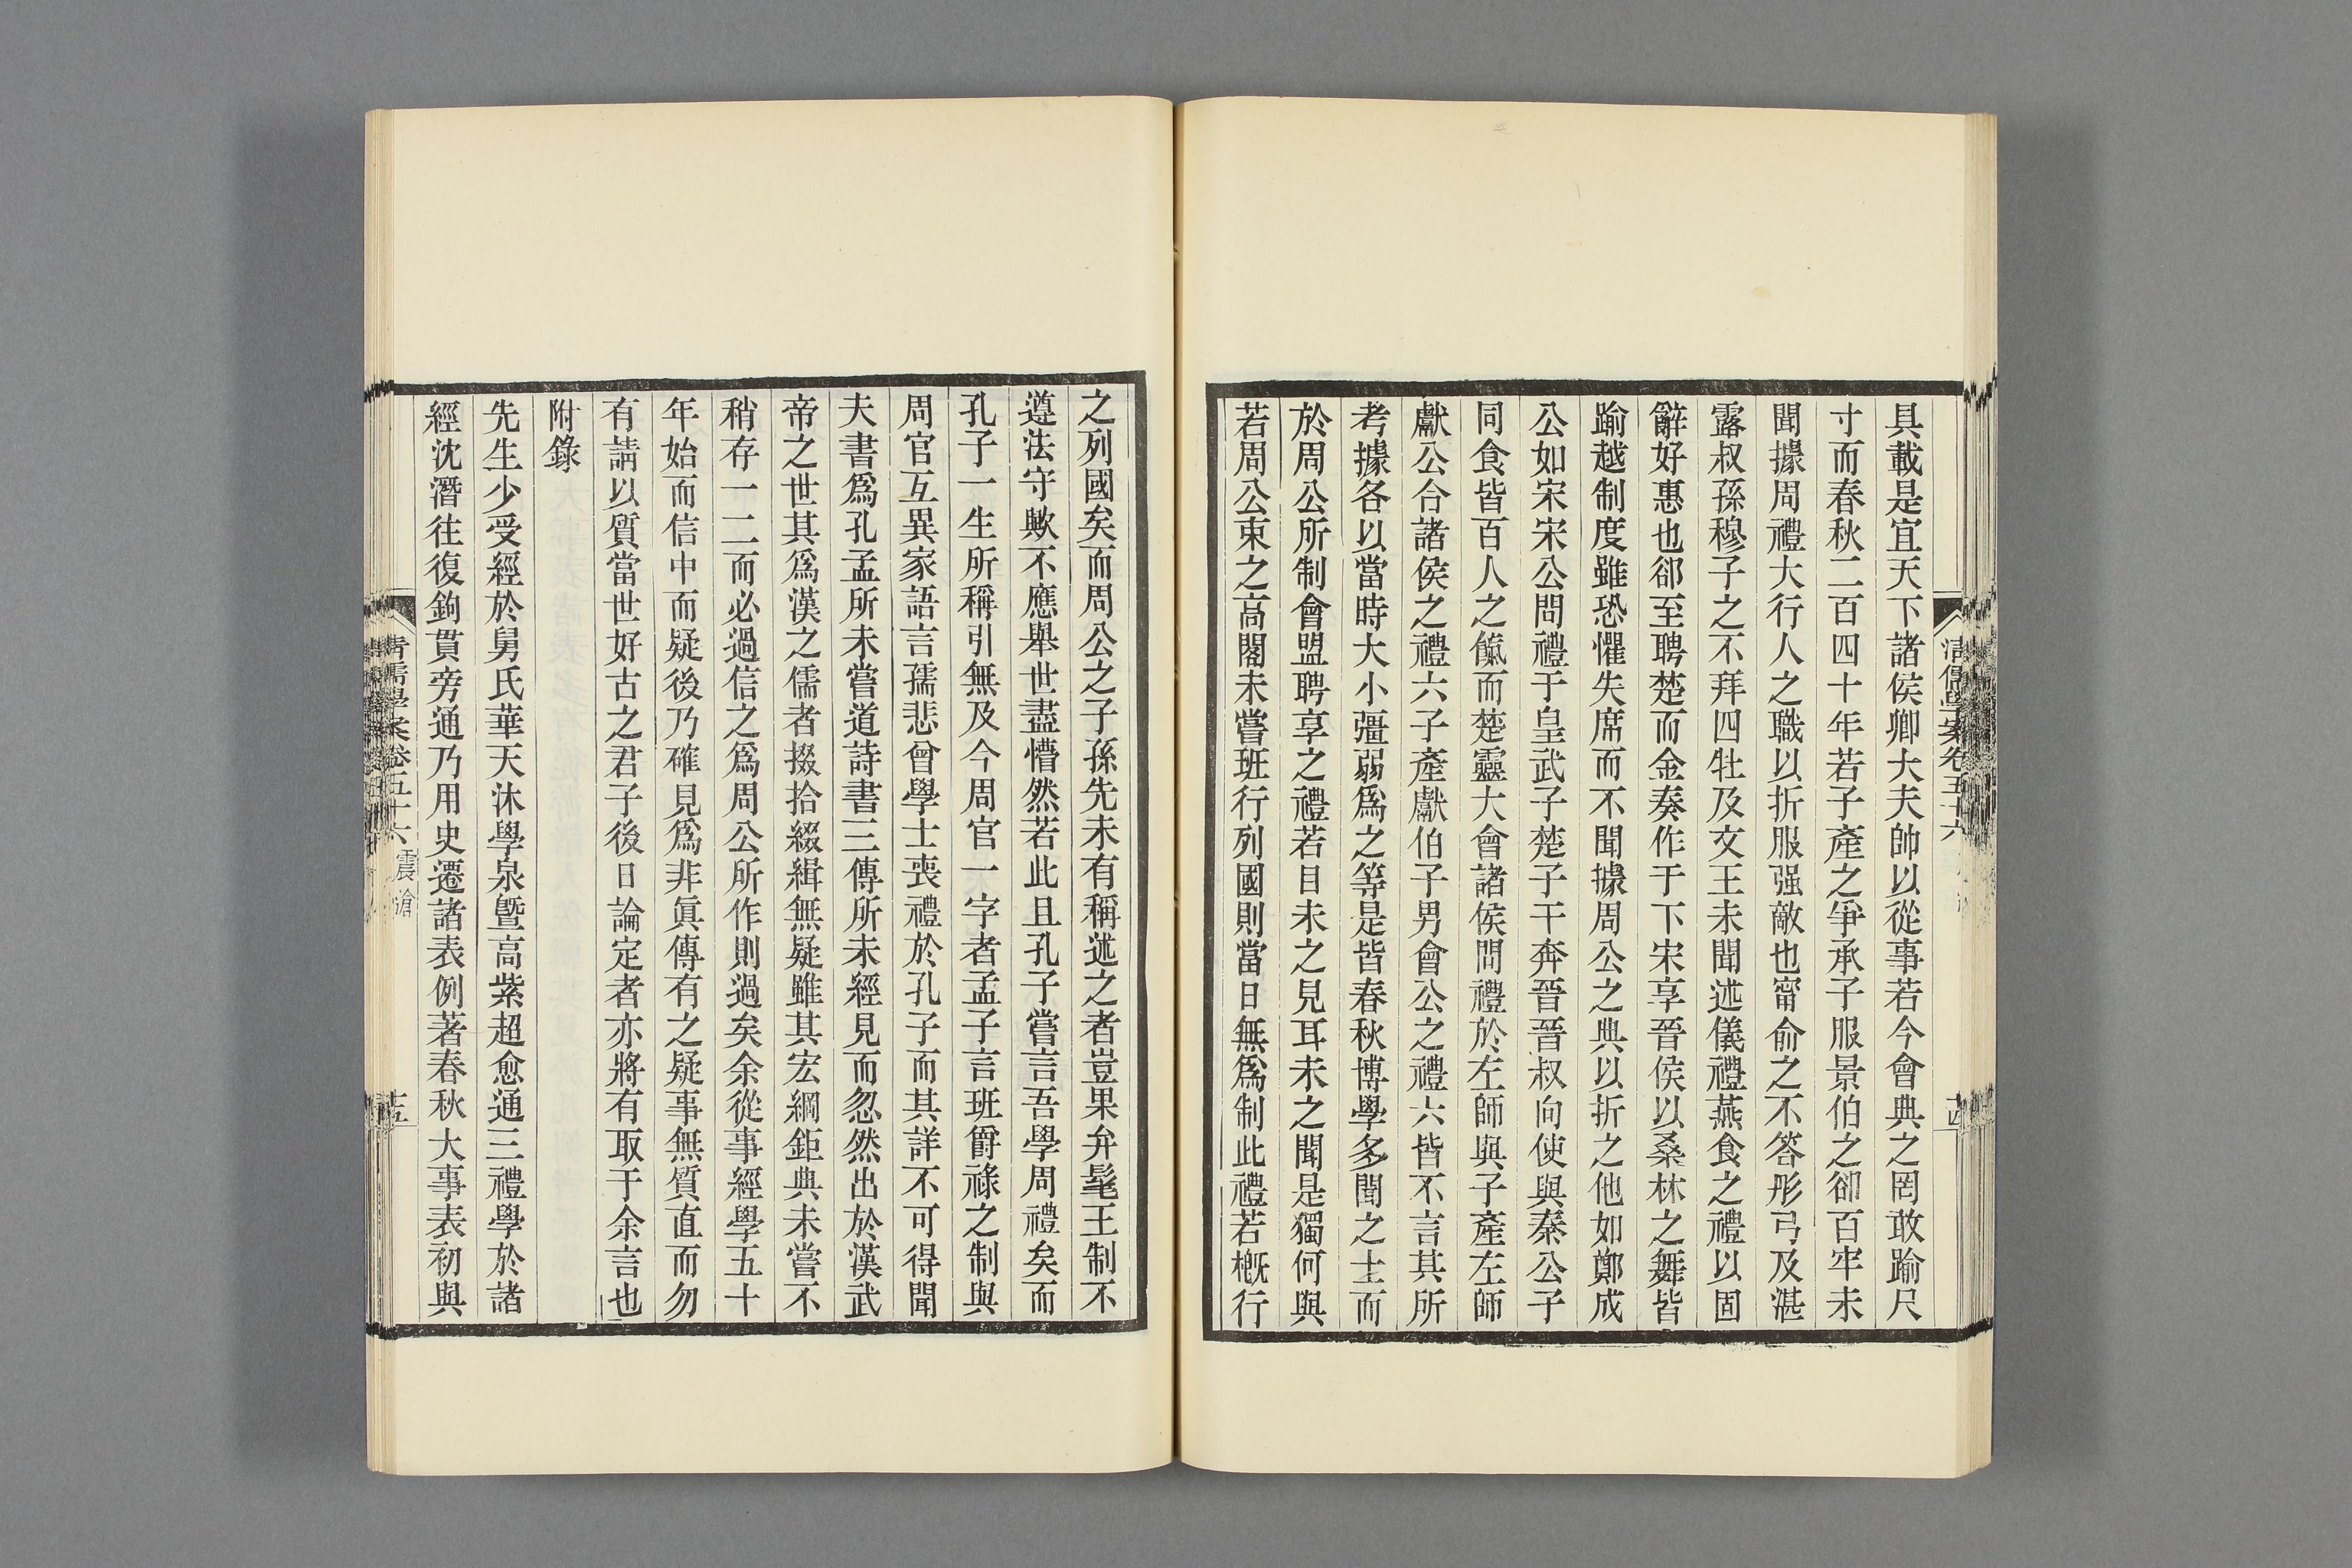 具載是宜天下諸侯卿大夫帥以從事若今會典之罔敢踰尺
寸而春秋二百四十年若子產之爭承子服景伯之卻百牢未
聞據周禮大行人之職以折服强敵也甯俞之不答彤弓及湛
露叔孫穆子之不拜四牡及文王未聞述儀禮燕食之禮以固
辭好惠也郤至聘楚而金奏作于下宋享晉侯以桑林之舞皆
踰越制度雖恐懼失席而不聞據周公之典以折之他如鄭成
公如宋宋公問禮于皇武子楚子干奔晉晉叔向使與秦公子
同食皆百人之餼而楚靈大會諸侯問禮於左師與子產左師
獻公合諸侯之禮六子產獻伯子男會公之禮六皆不言其所
考據各以當時大小彊弱爲之等是皆春秋博學多聞之士而
於周公所制會盟聘享之禮若目未之見耳未之聞是獨何與
若周公束之高閣未嘗班行列國則當日無爲制此禮若槪行
清儒學案卷五十六
十四
之列國矣而周公之子孫先未有稱述之者豈果弁髦王制不
遵法守歟不應舉世盡懵然若此且孔子嘗言吾學周禮矣而
孔子一生所稱引無及今周官一字者孟子言班爵祿之制與
周官互異家語言孺悲曾學士喪禮於孔子而其詳不可得聞
夫書爲孔孟所未嘗道詩書三傳所未經見而忽然出於漢武
帝之世其爲漢之儒者掇拾綴緝無疑雖其宏綱鉅典未嘗不
稍存一二而必過信之爲周公所作則過矣余從事經學五十
年始而信中而疑後乃確見爲非眞傳有之疑事無質直而勿
有請以質當世好古之君子後日論定者亦將有取于余言也
附錄
先生少受經於舅氏華天沐學泉曁高紫超愈通三禮學於諸
經沈潛往復鉤貫旁通乃用史遷諸表例著春秋大事表初與
清儒學案卷五十六 震滄
十五